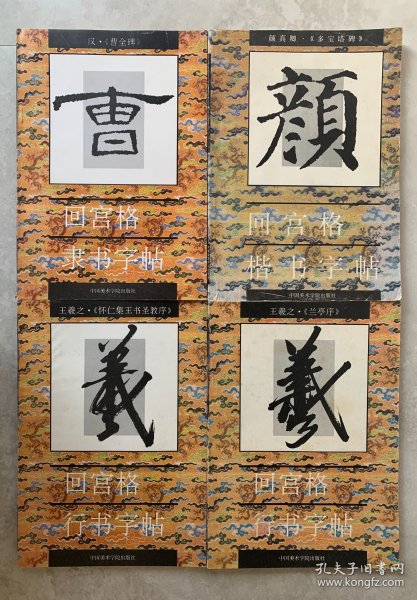 汉·《曹全碑》
曹
回宫格
隶书字帖
中国美术学院出版社
颜真卿·《多宝塔碑》
顔
回宫格
楷书字帖
中国美术学院出版社
王羲之·《怀仁集王书圣教序》
羲
回宫格
行书字帖
中国美术学院出版社
王羲之·《兰亭序》
羲
回宫格
行书字帖
中国美术学院出版社
孔夫子旧书网
www.kongfz.com